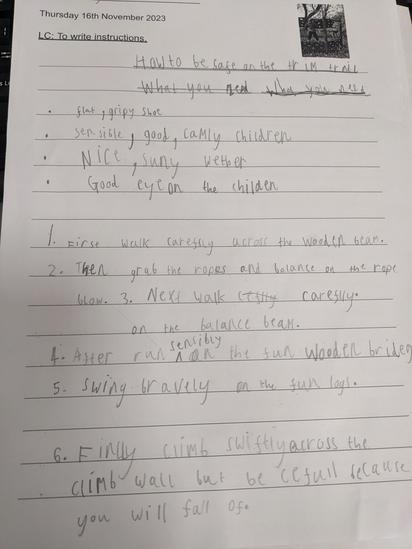 Thursday 16th November 2023
LC: To write instructions.
How to be safe on the trim trall
What you need What you need
• flat, gripy shoe
• sensible, good, camly children
• Nice, suny wether
• Good eye on the childen
1. Firse walk carefly across the wooden beam.
2. Then grab the ropes and balance on the rope
blow. 3. Next walk carefly.
on the balance beam.
sensibly
4. After run ^ on the fun wooden bridge
5. Swing bravely on the fun logs.
6. Finlly climb swiftly across the
climb wall but be cefull because
you will fall of.